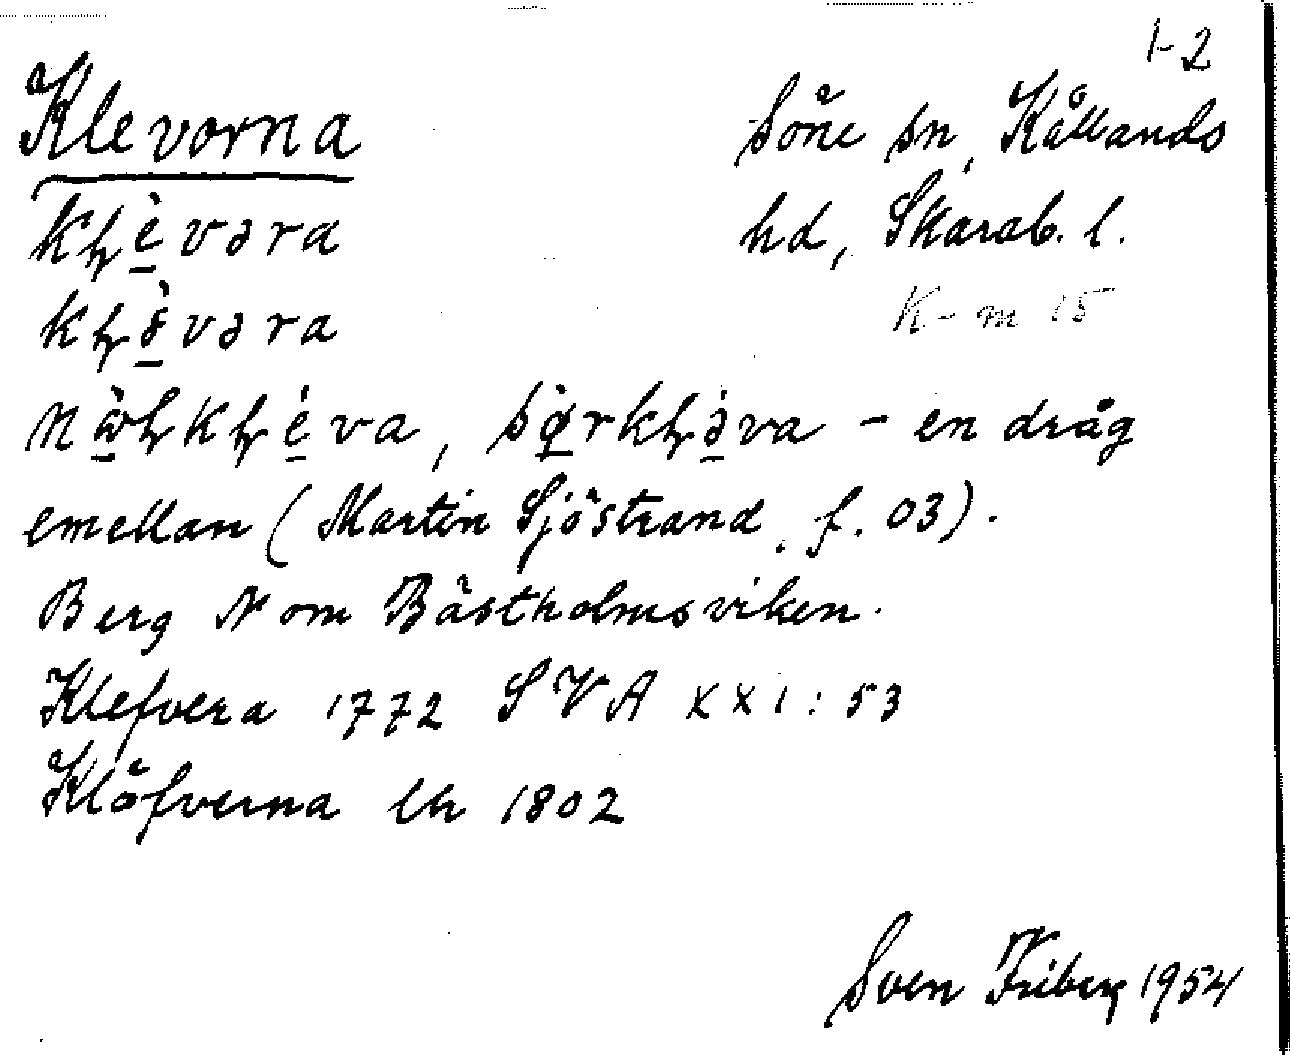 1-2
Klevorna
Söne sn, Kållands
kḷèvəra
hd, Skarab. l.
kḷə̀vəra
K-m 15
kḷèva, kḷə̀va - en dråg
emellan (Martin Sjöstrand, f. 03).
Berg N om Båstholmsviken.
Klefvera 1772 SVA XXI:53
Klöfverna lh 1802
Sven Friberg 1954